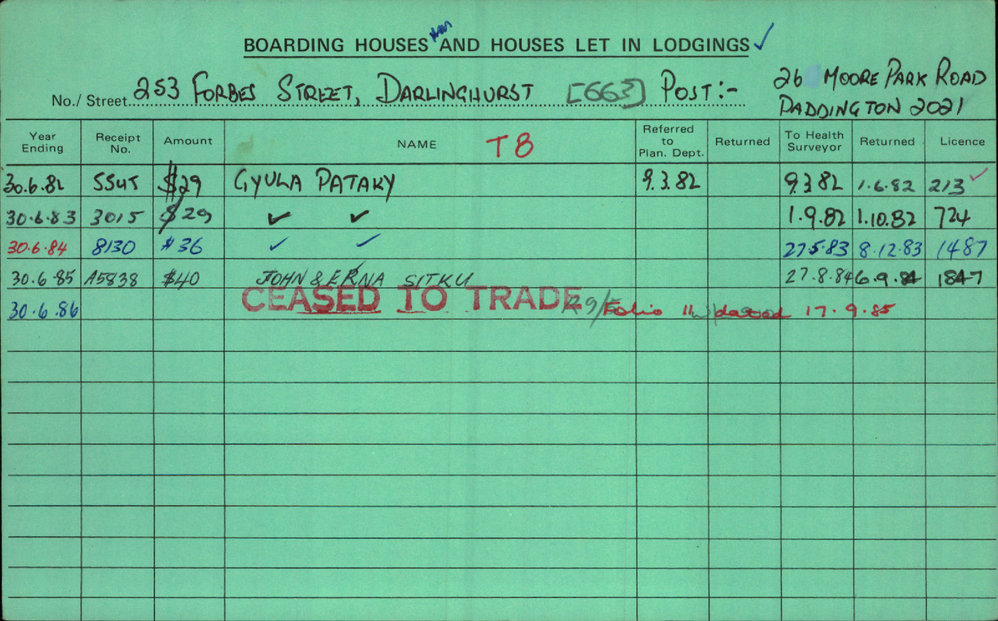 BOARDING HOUSES AND HOUSES LET IN LODGINGS ✓
No./ Street 253 FORBES STREET, DARLINGHURST [663] POST:- 26 MOORE PARK ROAD
PADDINGTON 2021
Year Ending Receipt No. Amount NAME TB Referred to Plan. Dept. Returned To Health Surveyor Returned Licence
30.6.82 $29 GYULA PATAKY 9.3.82 9382 1.6.82 213 ✓
30.6.83 3015 $29 ✓ ✓ 1.9.82 1.10.82 724
30.6.84 8130 $36 ✓ ✓ 27.5.83 8.12.83 1487
30.6.85 A5838 $40 JOHN & ERNA SITKU 27.8.84 6.9.84 1847
30.6.86 CEASED TO TRADE Folio 11 dated 17.9.85